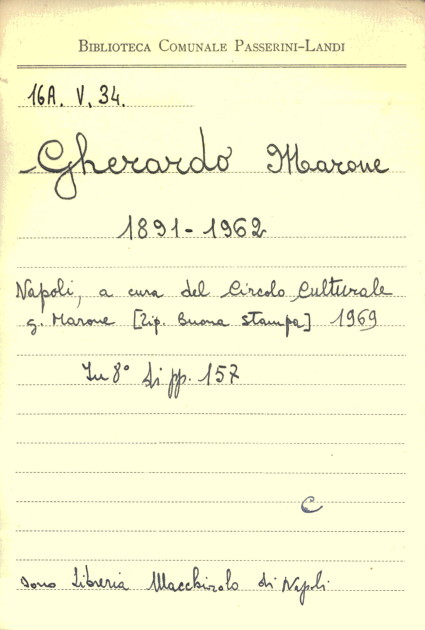 BIBLIOTECA COMUNALE PASSERINI-LANDI
16A. V. 34.
Gherardo Marone
1891-1962
Napoli, a cura del Circolo Culturale
g. Marone [Tip. Buona Stampa] 1969
In 8° di pp. 157
C
dono Libreria Macchiarolo di Napoli